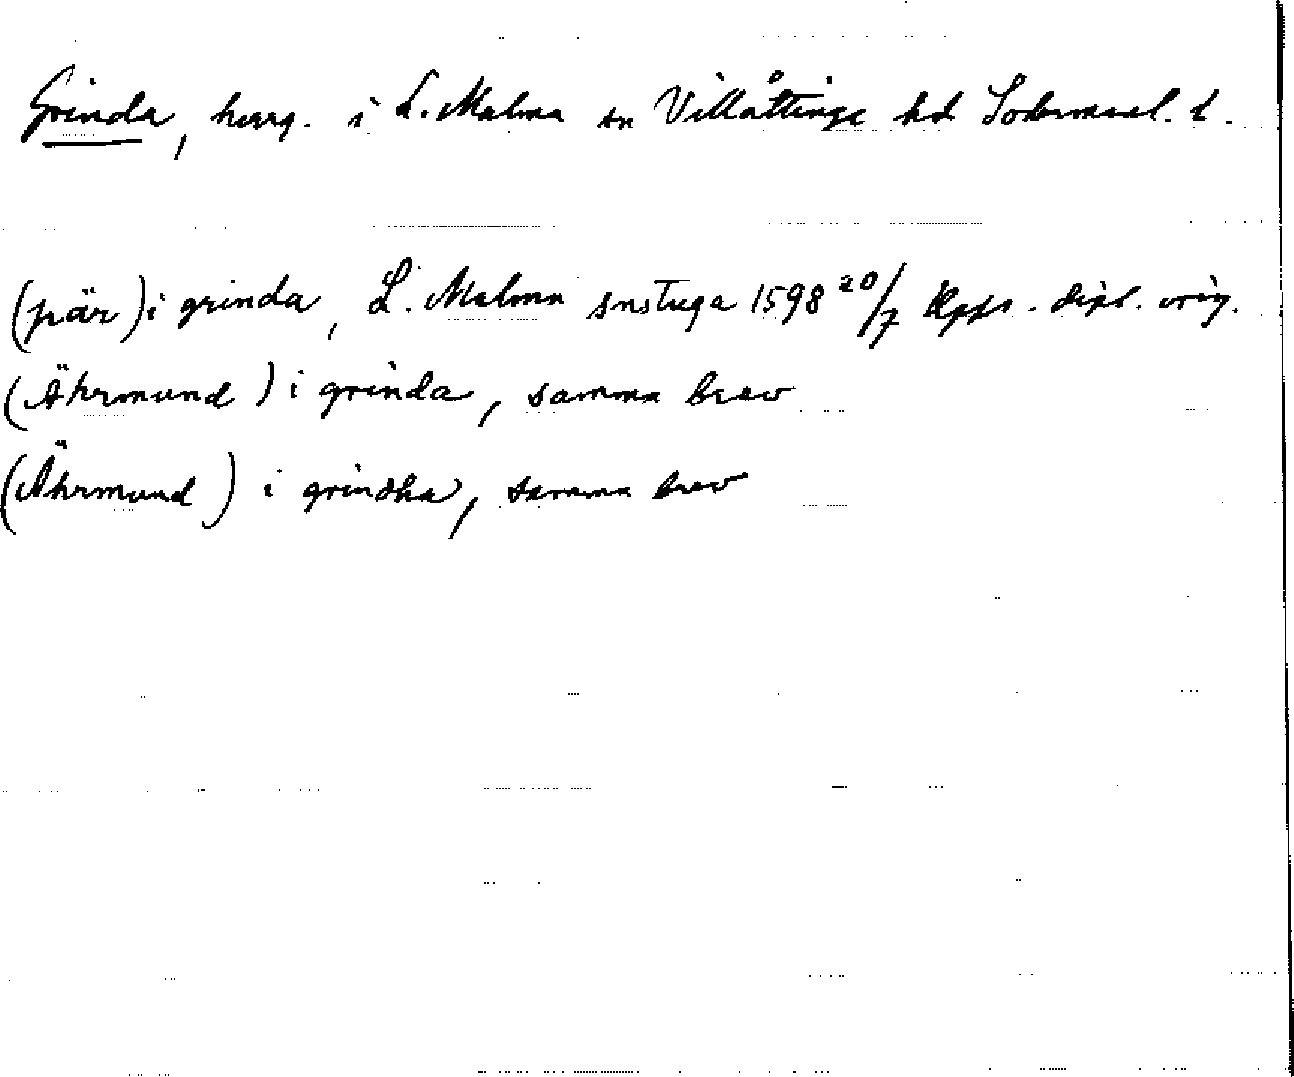 Grinda, herrg. i L. Malma sn Villåttinge hd Södermanl. l.
(pär) i grinda, L. Malma snstuga 1598 20/7 Kpps. dipl. orig.
(Ährmund) i grinda, samma brev
(Ährmund) i grindha, samma brev